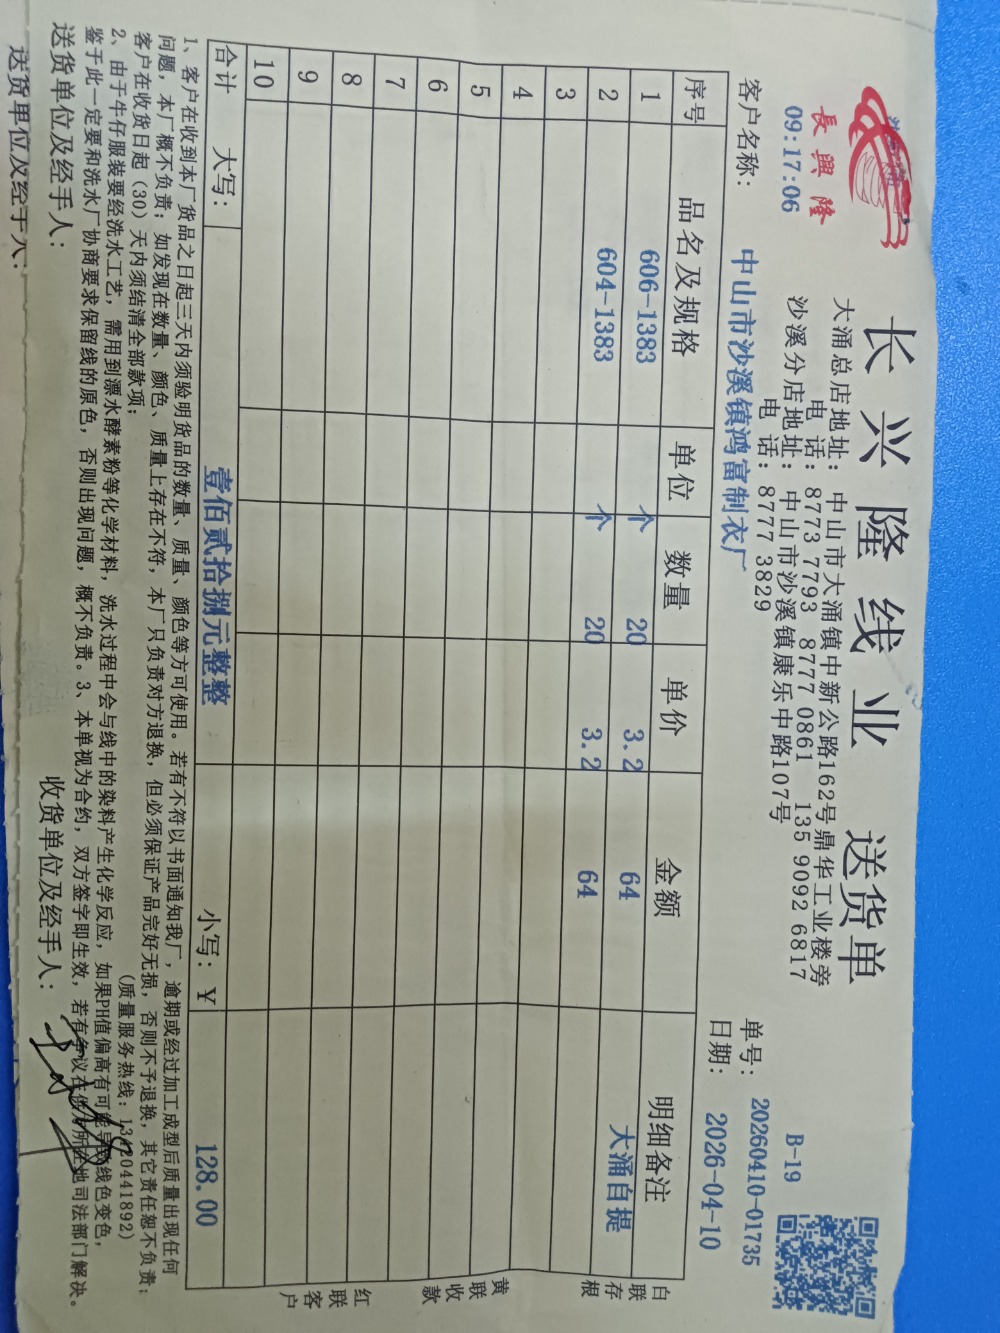 長興隆
09:17:06
长兴隆线业 送货单
大涌总店地址:中山市大涌镇中新公路162号鼎华工业楼旁
电 话:8773 7793 8777 0861 135 9092 6817
沙溪分店地址:中山市沙溪镇康乐中路107号
电 话:8777 3829
B-19
单号: 20260410-01735
日期: 2026-04-10
客户名称: 中山市沙溪镇鸿富制衣厂
序号 品名及规格 单位 数量 单价 金额 明细备注
1 606-1383 个 20 3.2 64 大涌自提
2 604-1383 个 20 3.2 64
3
4
5
6
7
8
9
10
合计 大写: 壹佰贰拾捌元整整 小写:¥ 128.00
白联存根
黄联收款
红联客户
1、客户在收到本厂货品之日起三天内须验明货品的数量、质量、颜色等方可使用。若有不符以书面通知我厂,逾期或经过加工成型后质量出现任何
问题,本厂概不负责;如发现在数量、颜色、质量上存在不符,本厂只负责对方退换,但必须保证产品完好无损,否则不予退换,其它责任恕不负责;
客户在收货日起(30)天内须结清全部款项;
(质量服务热线:13420441892)
2、由于牛仔服装要经洗水工艺,需用到漂水酵素粉等化学材料,洗水过程中会与线中的染料产生化学反应,如果PH值偏高有可能导致线色变色,
鉴于此一定要和洗水厂协商要求保留线的原色,否则出现问题,概不负责。3、本单视为合约,双方签字即生效,若有争议在供方所在地司法部门解决。
送货单位及经手人: 收货单位及经手人:
送货单位及经手人: